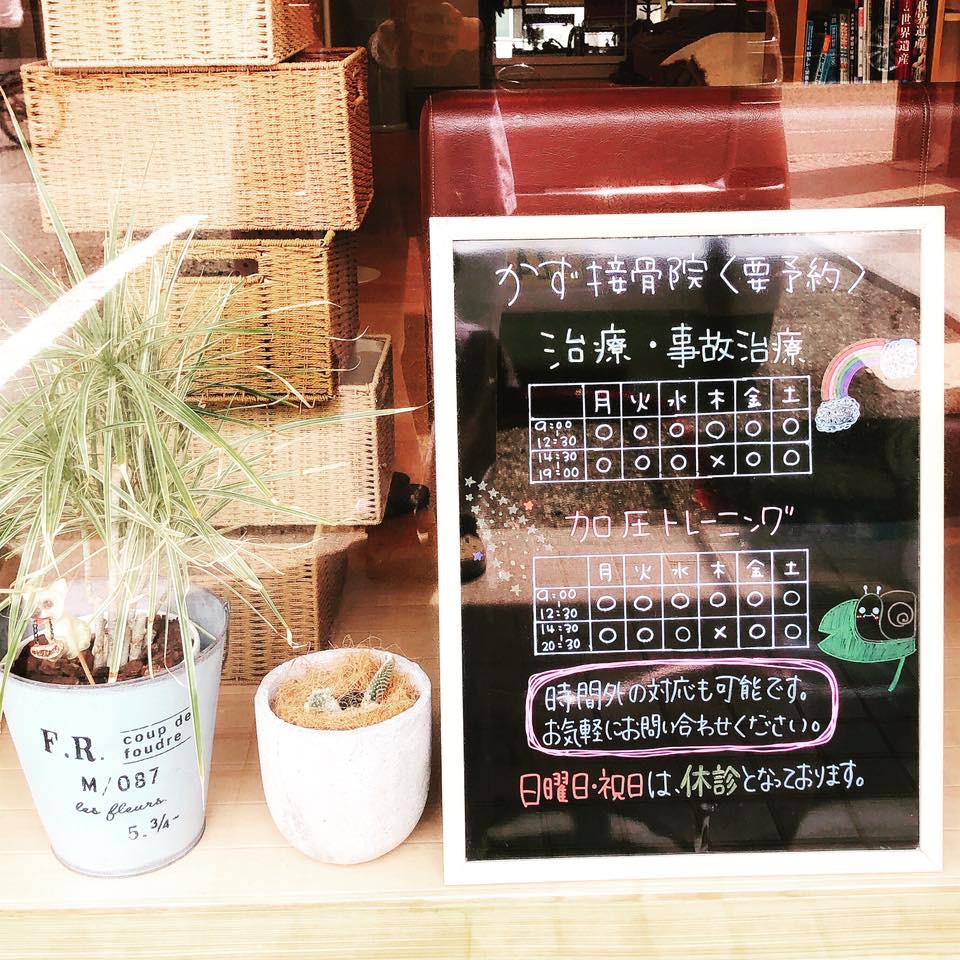 世界遺産
世界遺産
かず接骨院〈要予約〉
治療・事故治療
月 火 水 木 金 土
9:00
12:30
○ ○ ○ ○ ○ ○
14:30
19:00
○ ○ ○ × ○ ○
加圧トレーニング
月 火 水 木 金 土
9:00
12:30
○ ○ ○ ○ ○ ○
14:30
20:30
○ ○ ○ × ○ ○
時間外の対応も可能です。
お気軽にお問い合わせください。
日曜日・祝日は、休診となっております。
F.R. coup de
foudre
M/087
les fleurs
5.3/4-